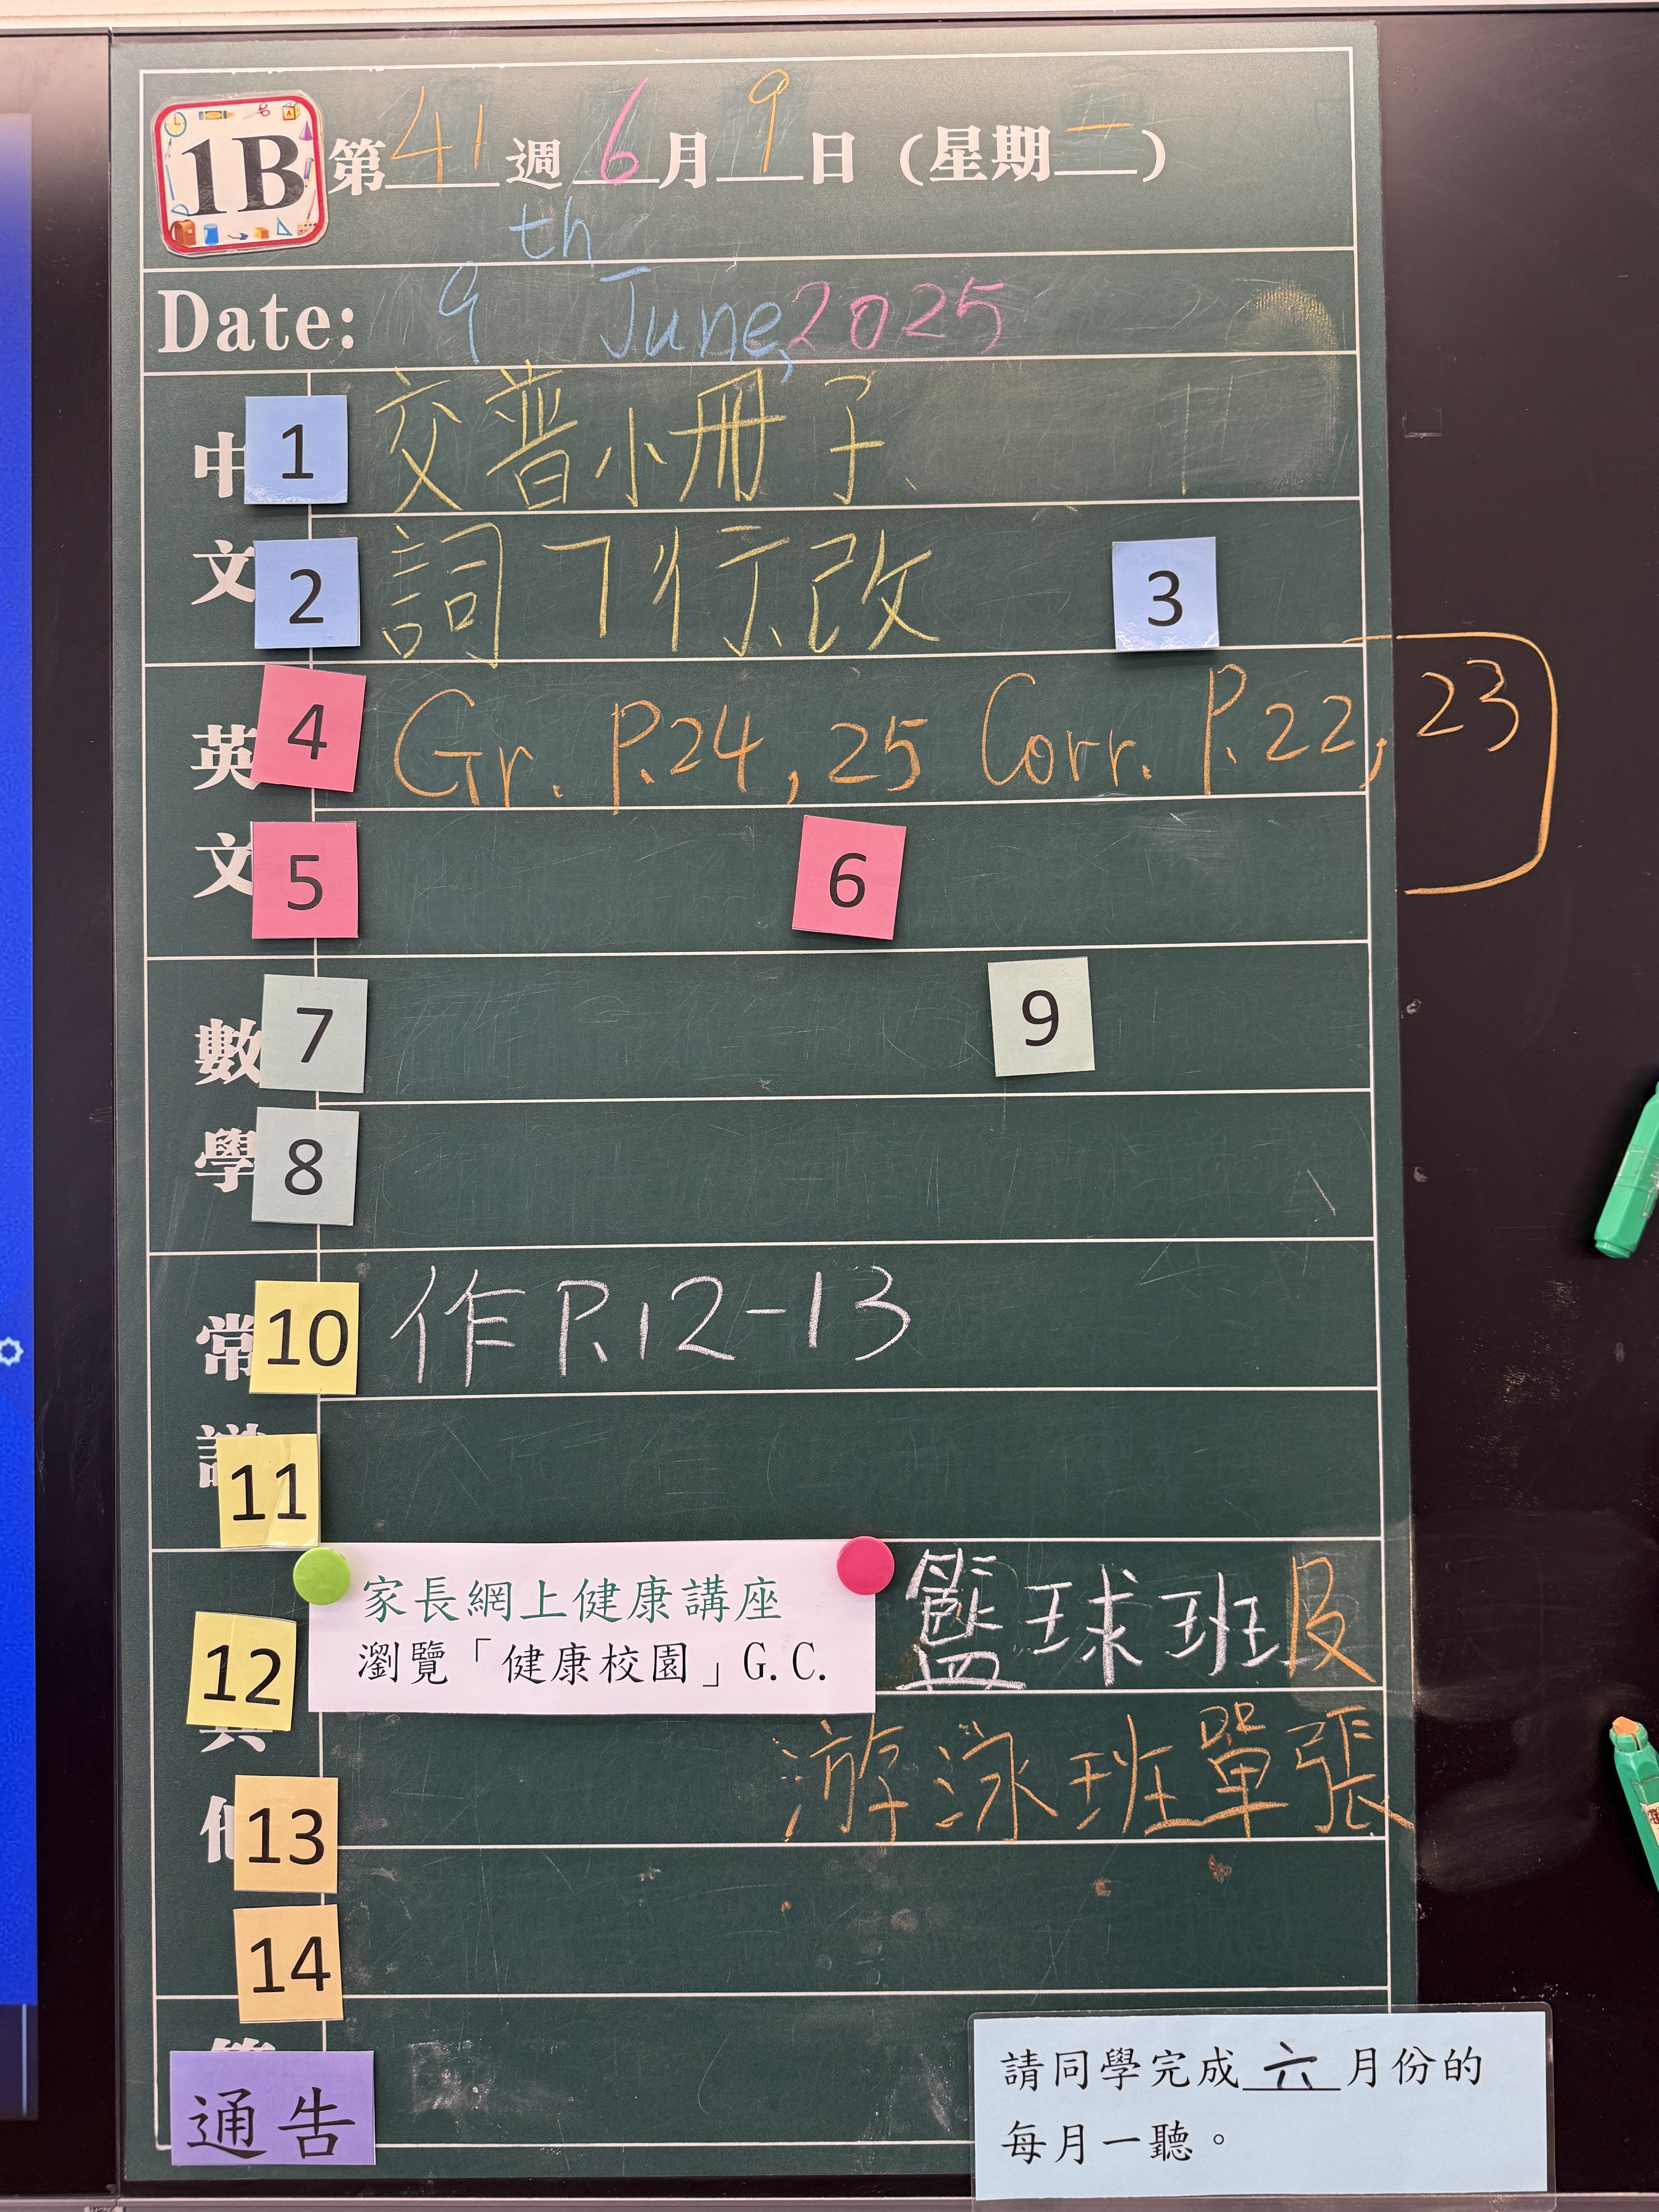 1B 第41週 6月9日（星期一）
Date: 9th June, 2025
中 1 交普小冊子
文 2 詞 7 行改 3
英 4 Gr. P.24, 25 Corr. P.22, 23
文 5 6
數 7 9
學 8
常 10 作 P.12-13
11
家長網上健康講座
12 瀏覽「健康校園」G.C. 籃球班及
13 游泳班單張
14
通告
請同學完成六月份的
每月一聽。